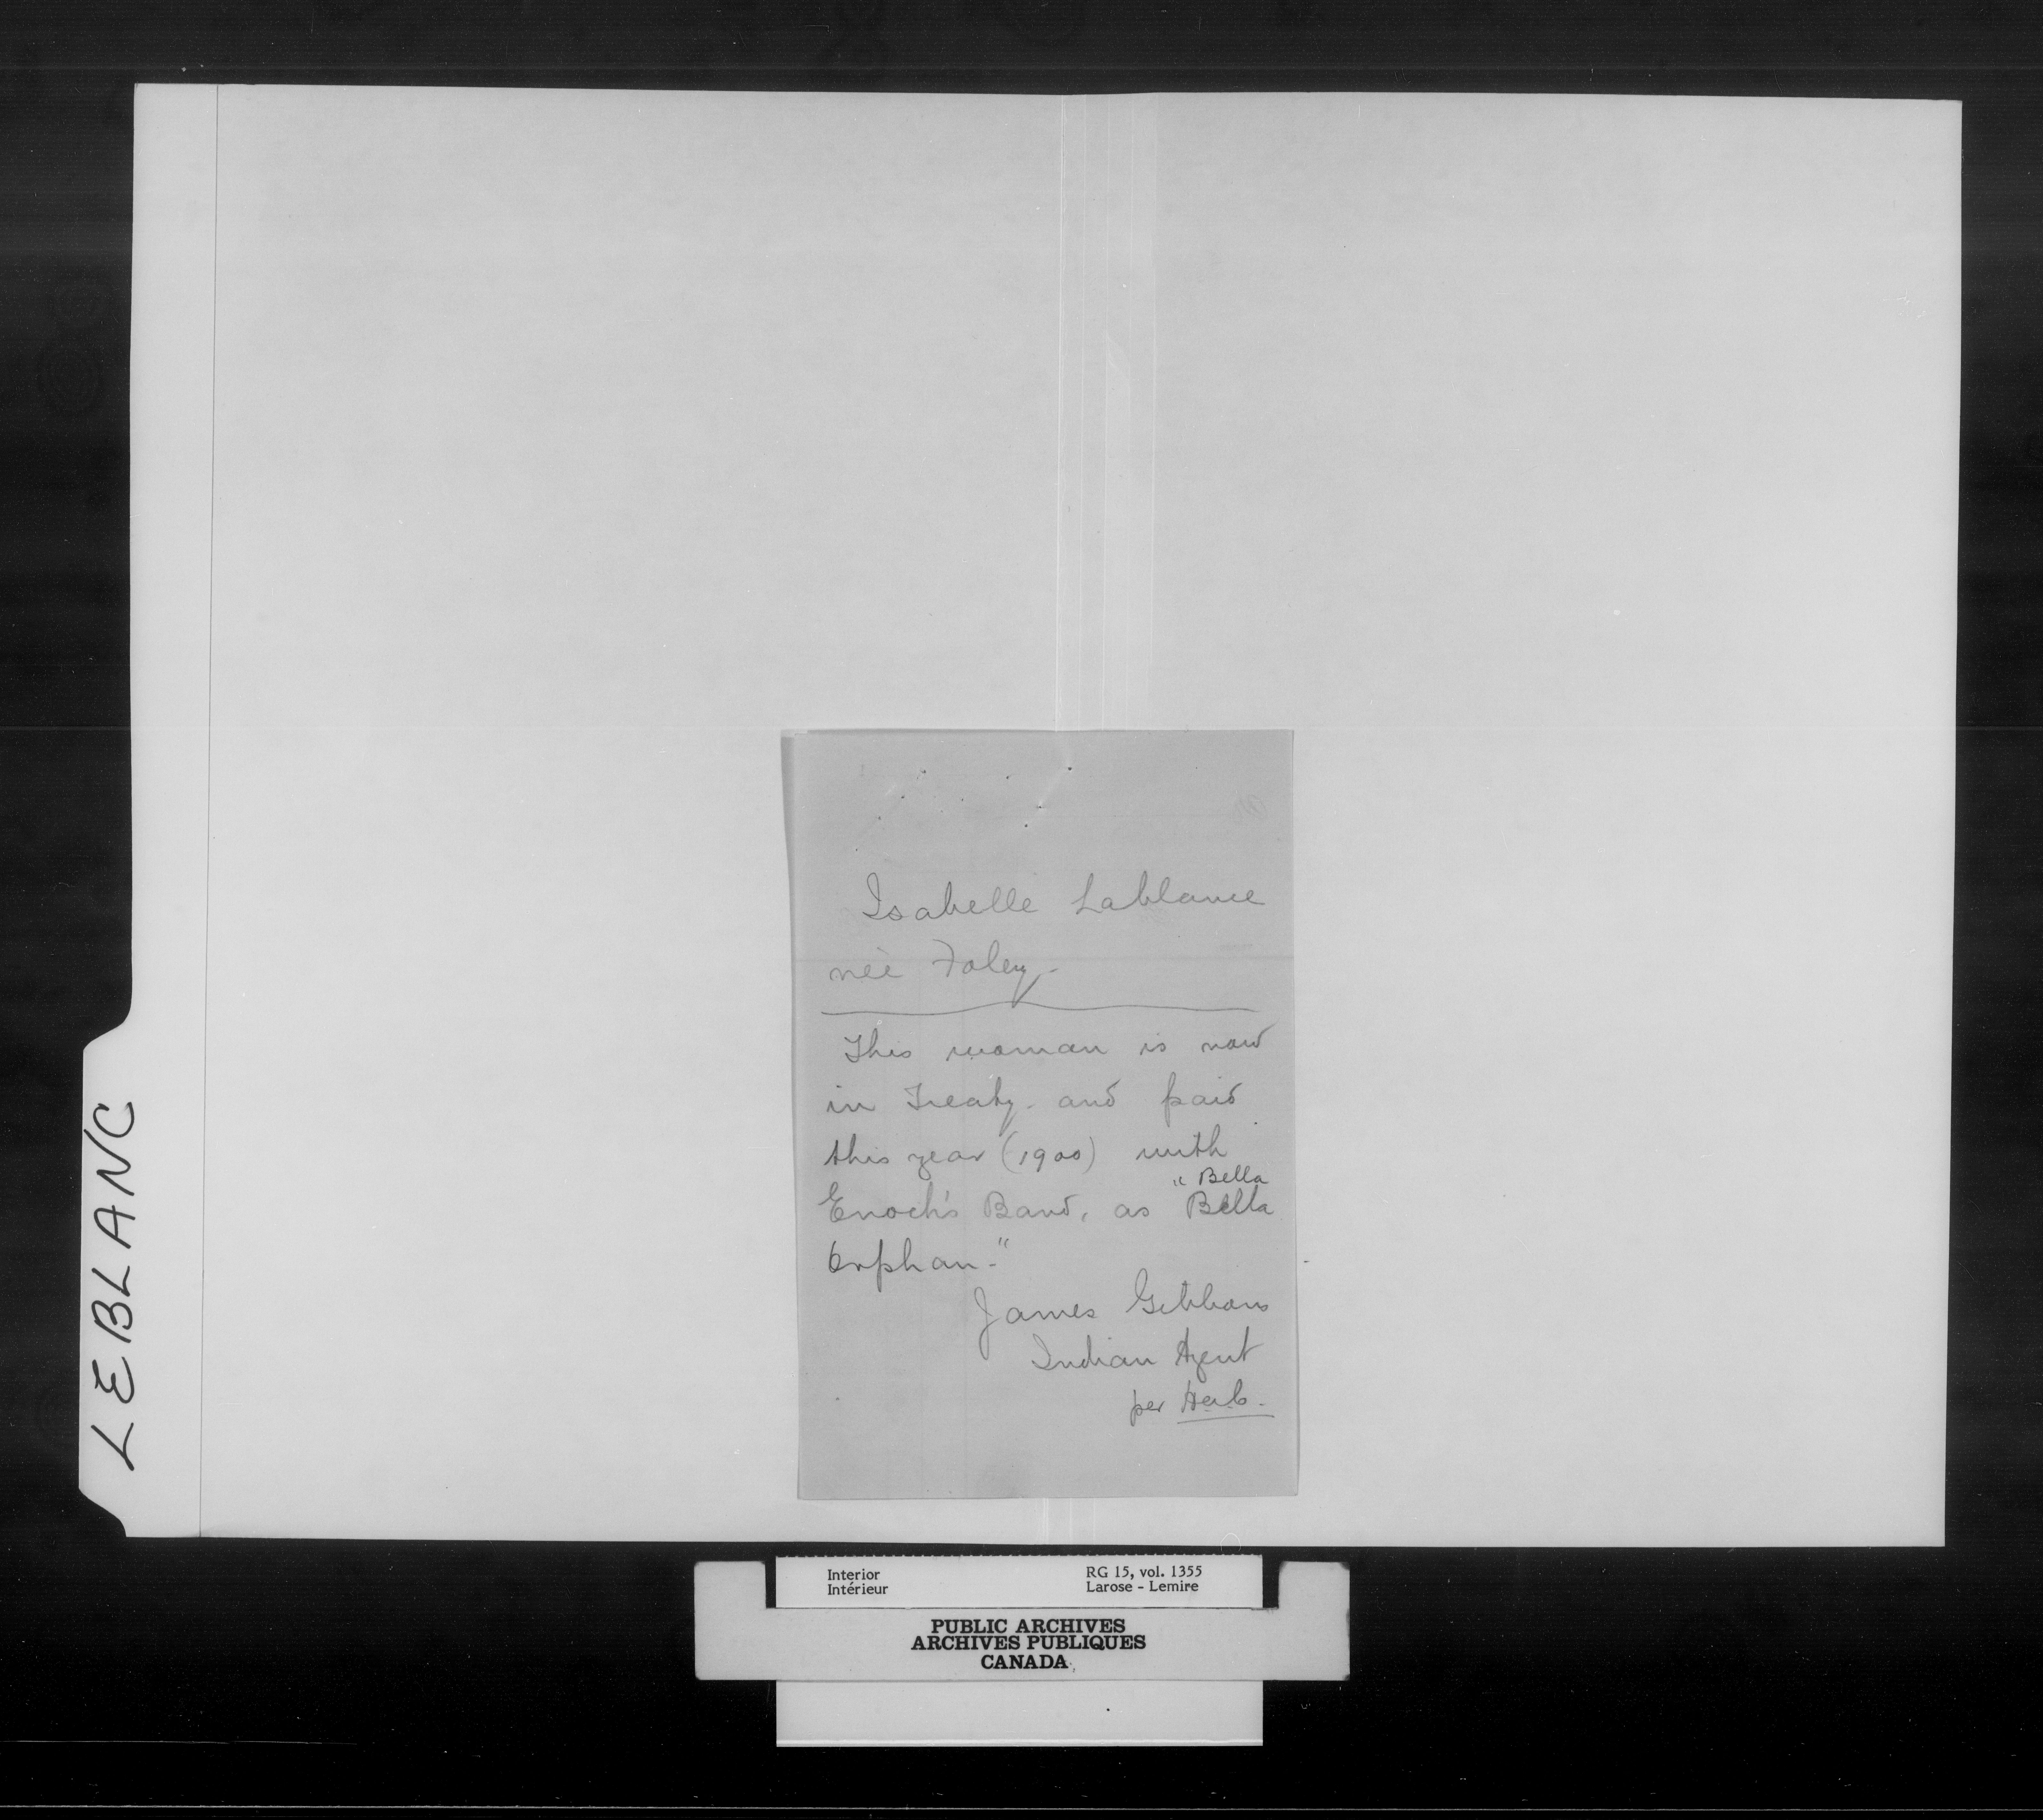 LEBLANC
Isabelle Lablance
neè Foley -
This woman is now
in Treaty - and paid
this year (1900) with
" Bella
Enoch's Band, as Bella
Orphan - "
James Gibbons
Indian Agent
per
Interior
Intérieur
RG 15, vol. 1355
Larose - Lemire
PUBLIC ARCHIVES
ARCHIVES PUBLIQUES
CANADA